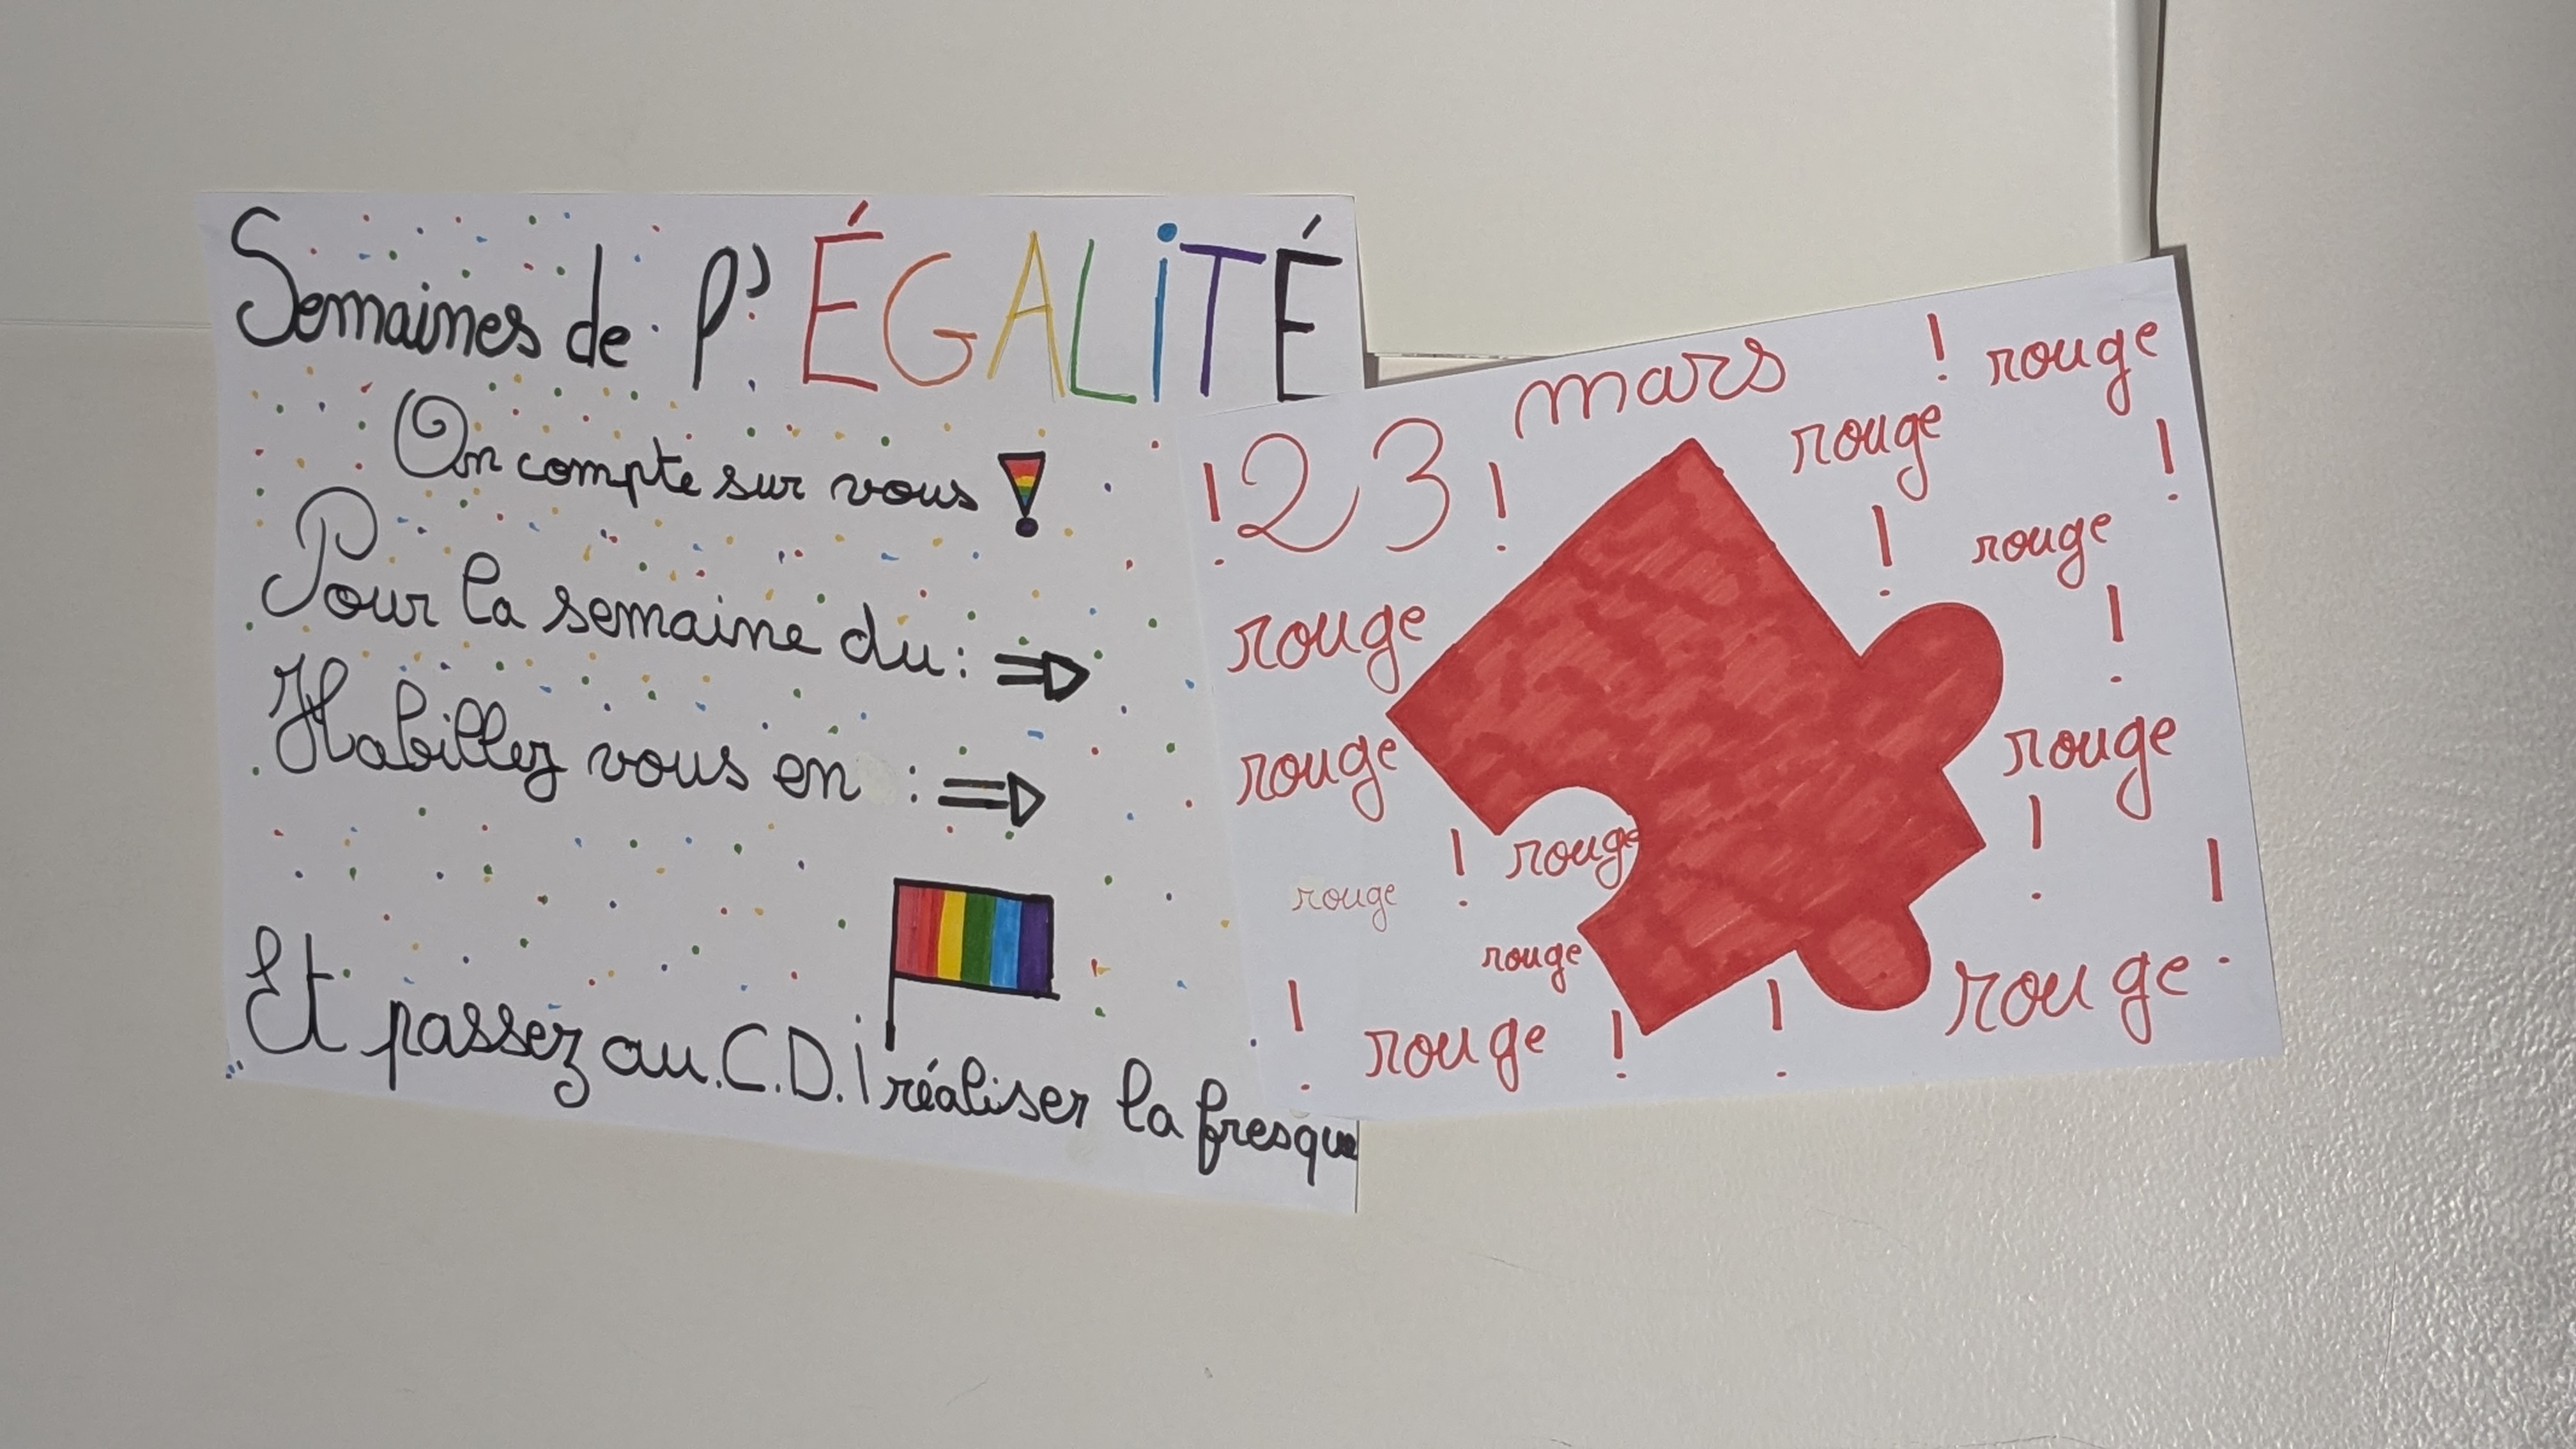 Semaines de l'ÉGALiTÉ
On compte sur vous !
Pour la semaine du : ⇒
Habillez vous en : ⇒
Et passez au C.D.I réaliser la fresque
mars
! 23 !
! rouge
rouge !
! rouge
!
rouge
rouge
rouge
! rouge
!
rouge
rouge
!
! rouge ! !
rouge